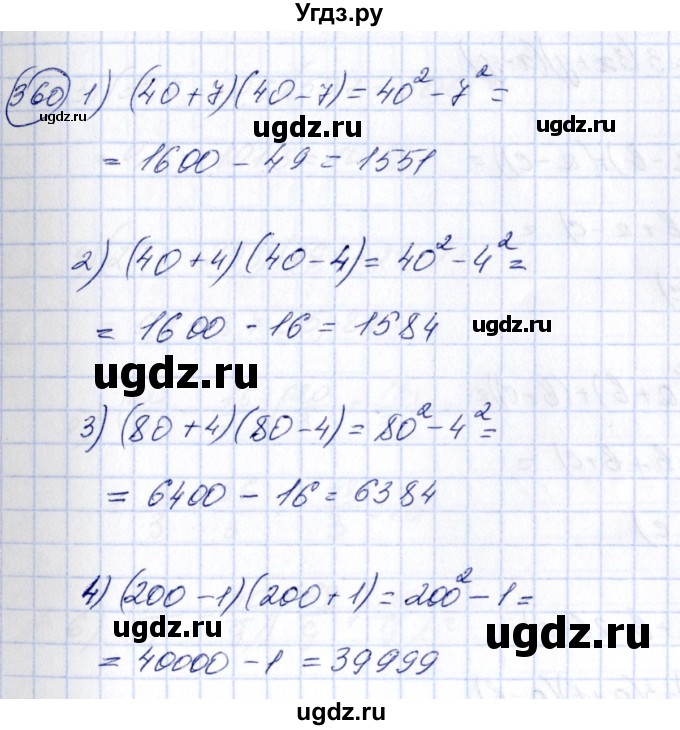 Угдз.ру
360 1) (40+7)(40-7) = 40² - 7² =
ugdz.ru
ugdz.ru
= 1600 - 49 = 1551
2) (40+4)(40-4) = 40² - 4² =
= 1600 - 16 = 1584
ugdz.ru
ugdz.ru
3) (80+4)(80-4) = 80² - 4² =
= 6400 - 16 = 6384
4) (200-1)(200+1) = 200² - 1 =
ugdz.ru
ugdz.ru
= 40000 - 1 = 39999
ugdz.ru